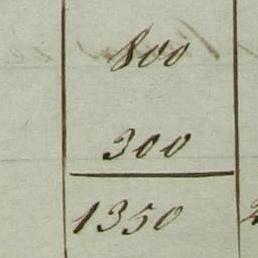 800
300
1350